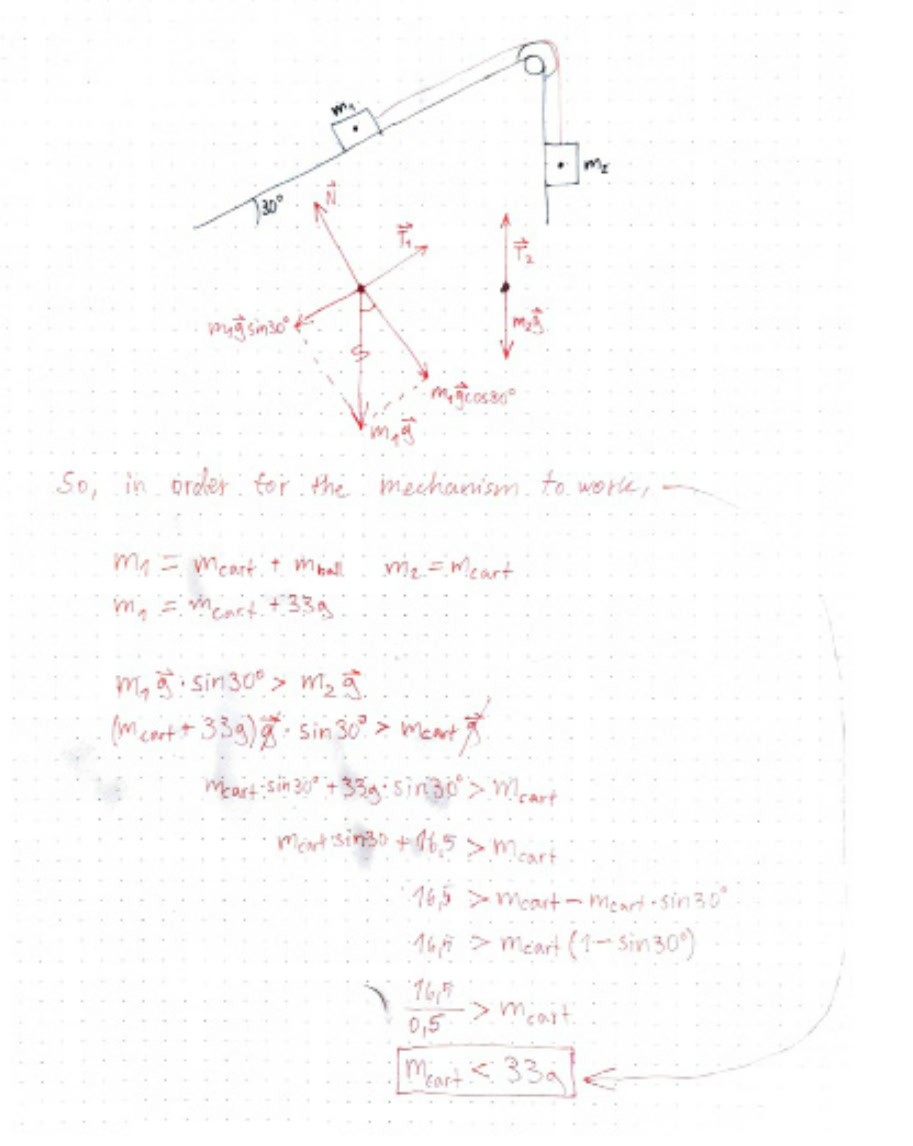 m₁
m₂
30°
N⃗
T⃗₁
T⃗₂
m₁g⃗sin30°
m₂g⃗
S
m₁g⃗cos30°
m₁g⃗
So, in order for the mechanism to work,
m₁ = mcart + mball m₂ = mcart
m₁ = mcart + 33g
m₁g⃗ · sin30° > m₂g⃗
(mcart + 33g)g⃗ · sin30° > mcart g⃗
mcart · sin30° + 33g · sin30° > mcart
mcart · sin30 + 16,5 > mcart
16,5 > mcart − mcart · sin30°
16,5 > mcart (1 − sin30°)
16,5
0,5 > mcart
mcart < 33g